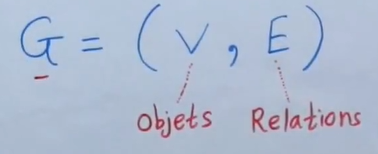 G = (V, E)
Objets Relations